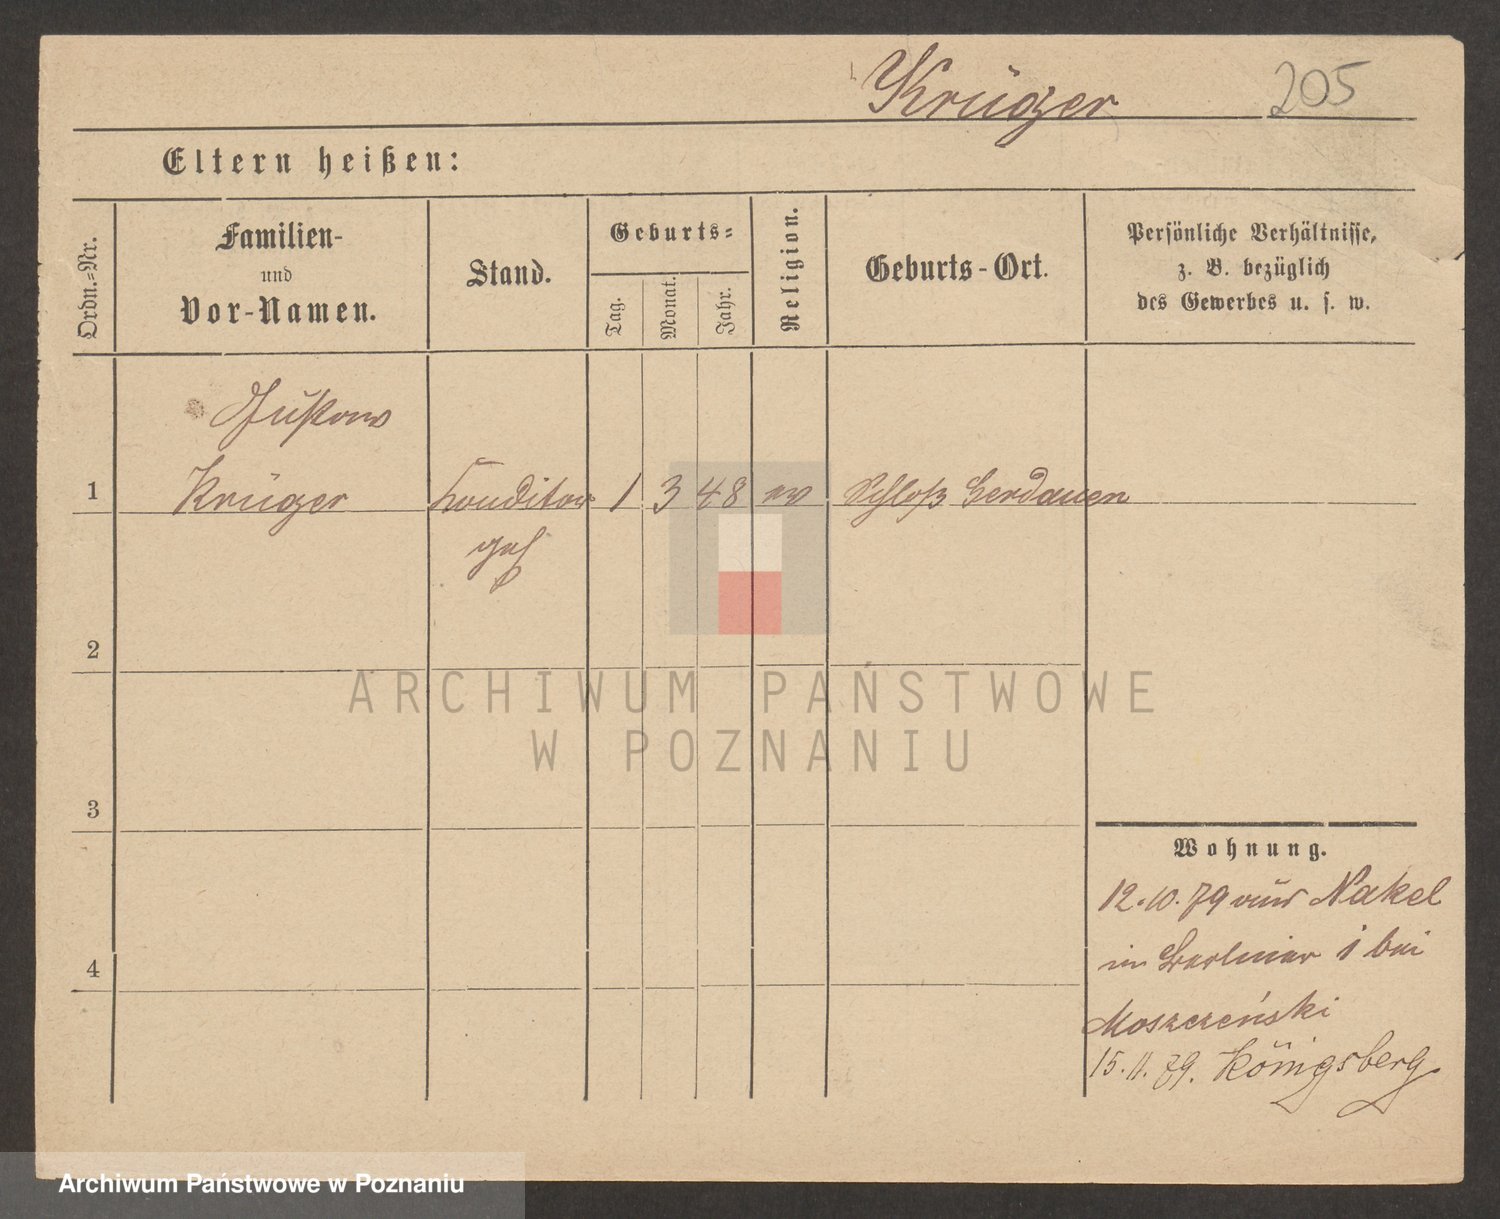 Krüger
205
Eltern heißen:
Ordn.-Nr.
Familien-
und
Vor-Namen.
Stand.
Geburts-
Tag.
Monat.
Jahr.
Religion.
Geburts-Ort.
Persönliche Verhältnisse,
z. B. bezüglich
des Gewerbes u. s. w.
Gustav
1 Krüger Konditor 1 3 48 ev Schloß Gerdauen
geh
2
3
4
Wohnung.
12.10.79 aus Nakel
in Berliner 1 bei
Moszczeński
15.11.79. Königsberg
ARCHIWUM PAŃSTWOWE
W POZNANIU
Archiwum Państwowe w Poznaniu